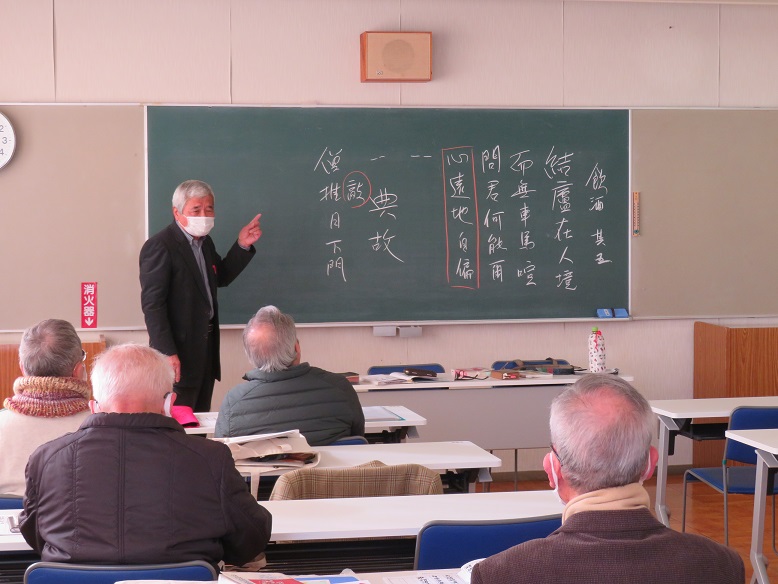 飲酒 其五
結廬在人境
而無車馬喧
問君何能爾
心遠地自偏
一 一
典故
敲
僧推月下門
消火器
2
3
4